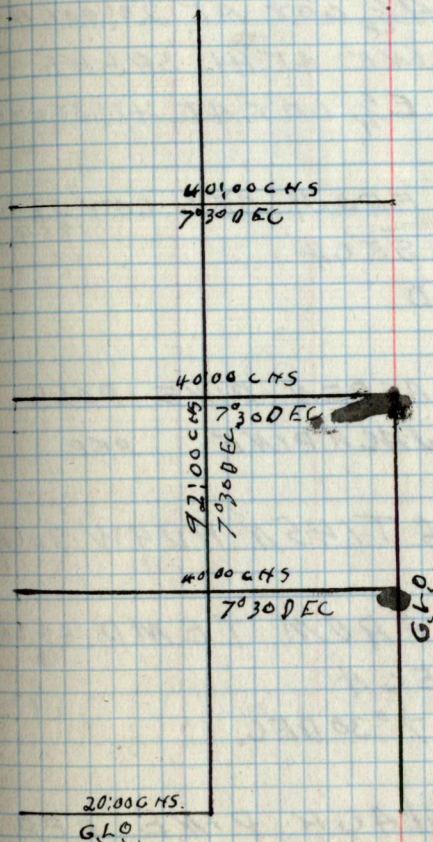 40:00 CHS
7°30 DEC
40 00 CHS
7°30 DEC
92:00 CHS
7°30 DEC
40 00 CHS
7°30 DEC
G.L.O
20:00 CHS.
G.L.O